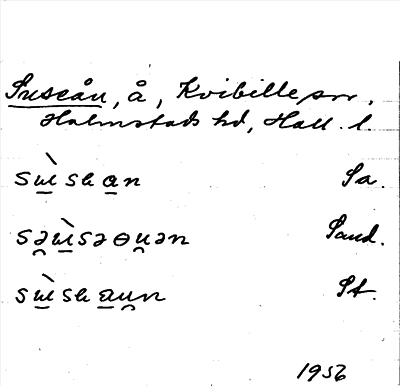 Suseån, å, Kvibille sn,
Halmstads hd, Hall. l.
sɯ̲̀sɑ̲n Sa.
sə̯ɯ̲̀səɵu̯ən Sand.
sɯ̲̀sɑ̲u̯n St.
1956